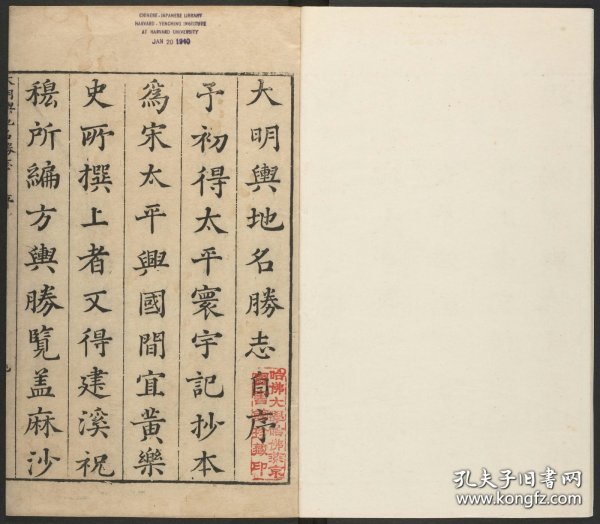 CHINESE-JAPANESE LIBRARY
HARVARD-YENCHING INSTITUTE
AT HARVARD UNIVERSITY
JAN 20 1940
大明輿地名勝志自序
予初得太平寰宇記抄本
爲宋太平興國間宜黃樂
史所撰上者又得建溪祝
穆所編方輿勝覽盖麻沙
孔夫子旧书网
www.kongfz.com